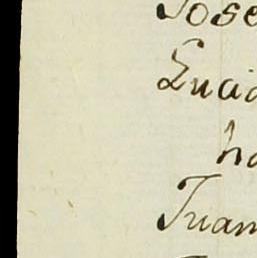 Jose
Lucia
ha
Juan